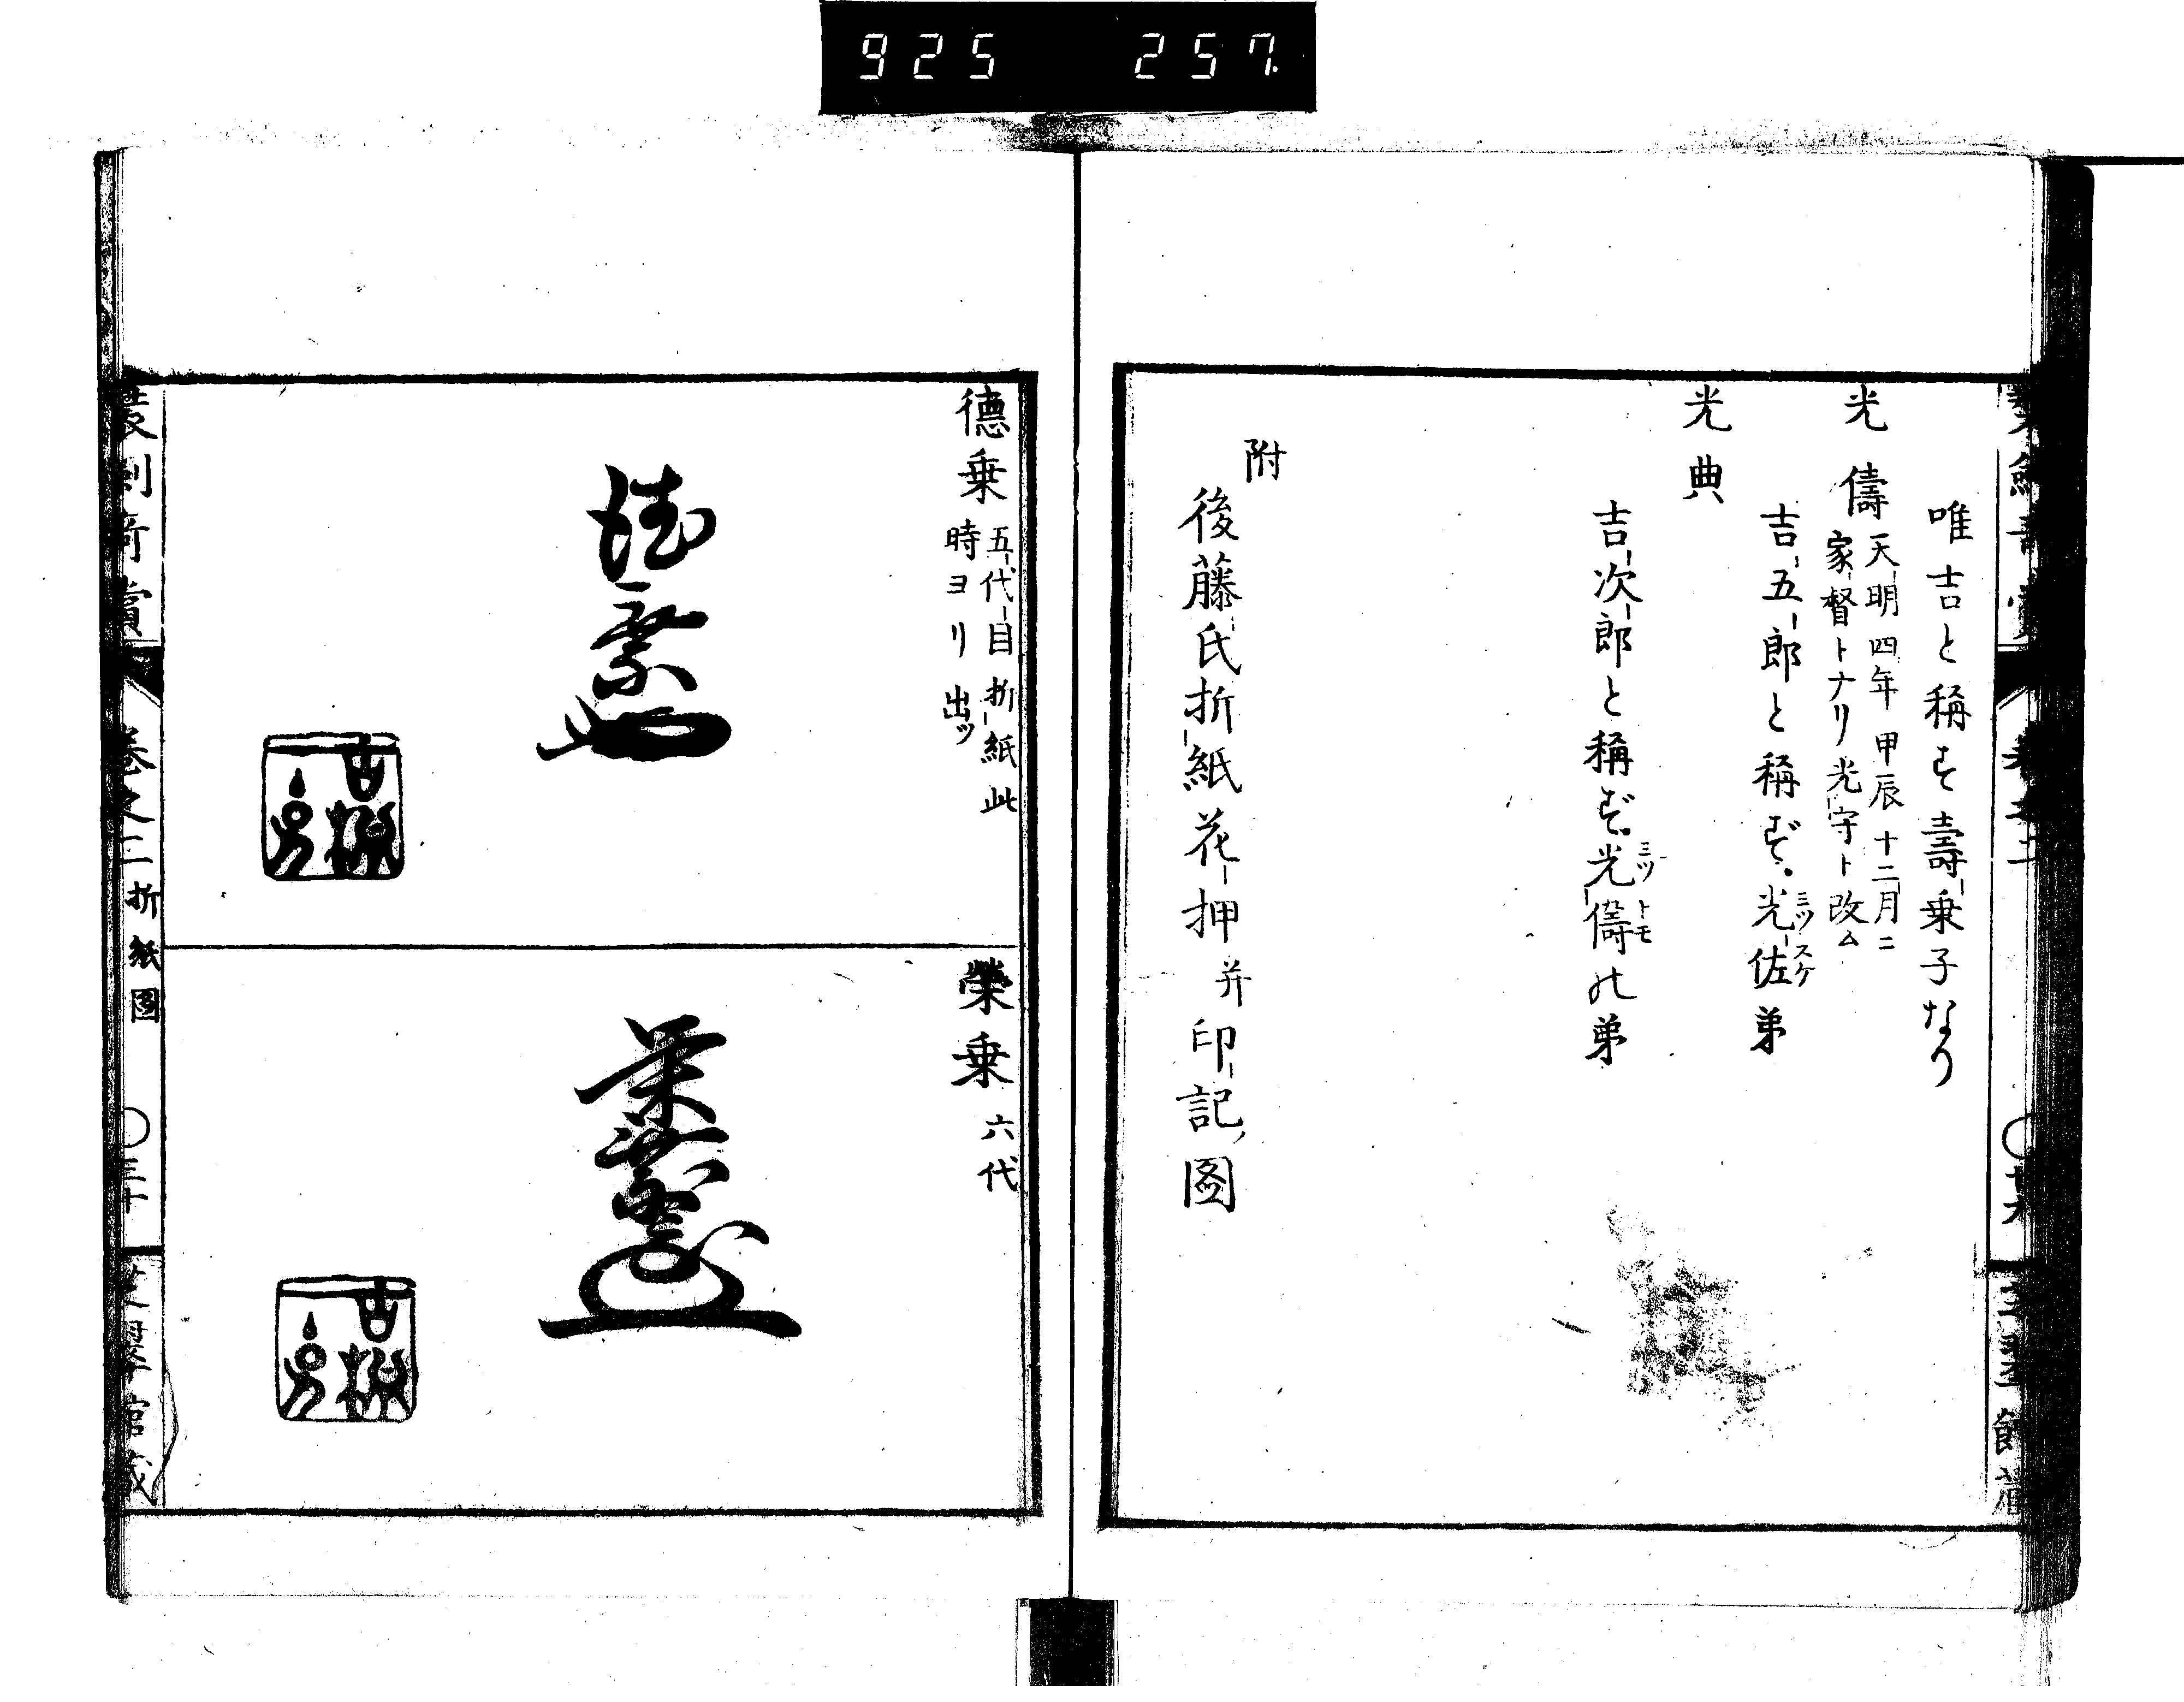 925 257
唯吉と稱す壽乗子なり
光儔
天明四年甲辰十二月ニ
家督トナリ光守ト改ム
吉五郎と稱ず光佐弟
ミツスケ
光典
吉次郎と稱ず光儔の弟
ミツトモ
附
後藤氏折紙花押并印記圖
德乗
五代目折紙此
時ヨリ出ツ
榮乗
六代
裝劍奇賞
卷之二
折紙圖